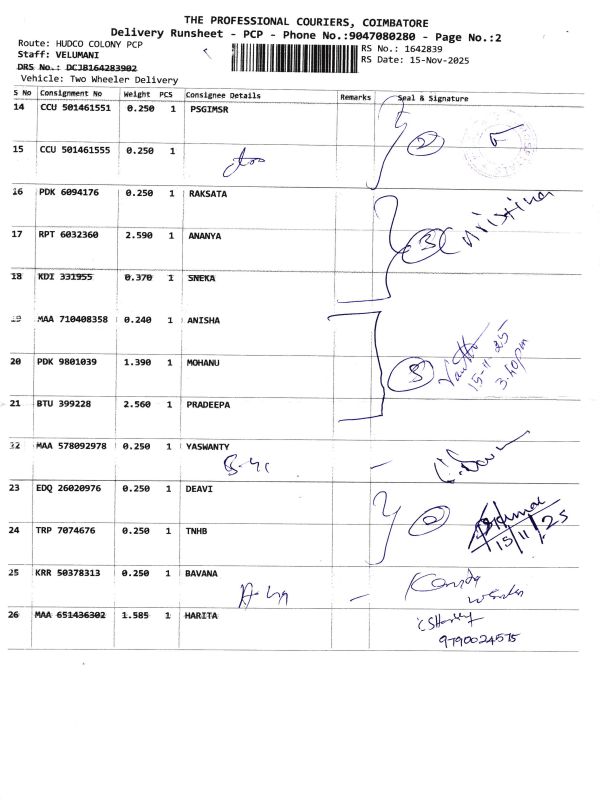 THE PROFESSIONAL COURIERS, COIMBATORE
Delivery Runsheet - PCP - Phone No.:9047080280 - Page No.:2
Route: HUDCO COLONY PCP
RS No.: 1642839
Staff: VELUMANI
RS Date: 15-Nov-2025
DRS No.: DCJB164283902
Vehicle: Two Wheeler Delivery
S No Consignment No Weight PCS Consignee Details Remarks Seal & Signature
14 CCU 501461551 0.250 1 PSGIMSR
2
15 CCU 501461555 0.250 1
16 PDK 6094176 0.250 1 RAKSATA
17 RPT 6032360 2.590 1 ANANYA
3 Christina
18 KDI 331955 0.370 1 SNEKA
19 MAA 710408358 0.240 1 ANISHA
20 PDK 9801039 1.390 1 MOHANU
15-11-25
3.40pm
21 BTU 399228 2.560 1 PRADEEPA
22 MAA 578092978 0.250 1 YASWANTY
23 EDQ 26020976 0.250 1 DEAVI
2
15/11/25
24 TRP 7074676 0.250 1 TNHB
25 KRR 50378313 0.250 1 BAVANA
26 MAA 651436302 1.585 1 HARITA
9790024575